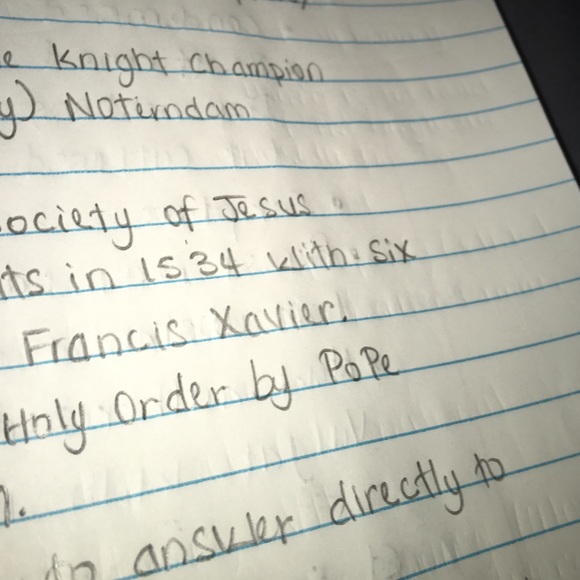 e Knight Champion
y) Noterndam
ociety of Jesus
ts in 1534 with six
Francis Xavier.
Holy Order by PoPe
to answer directly to